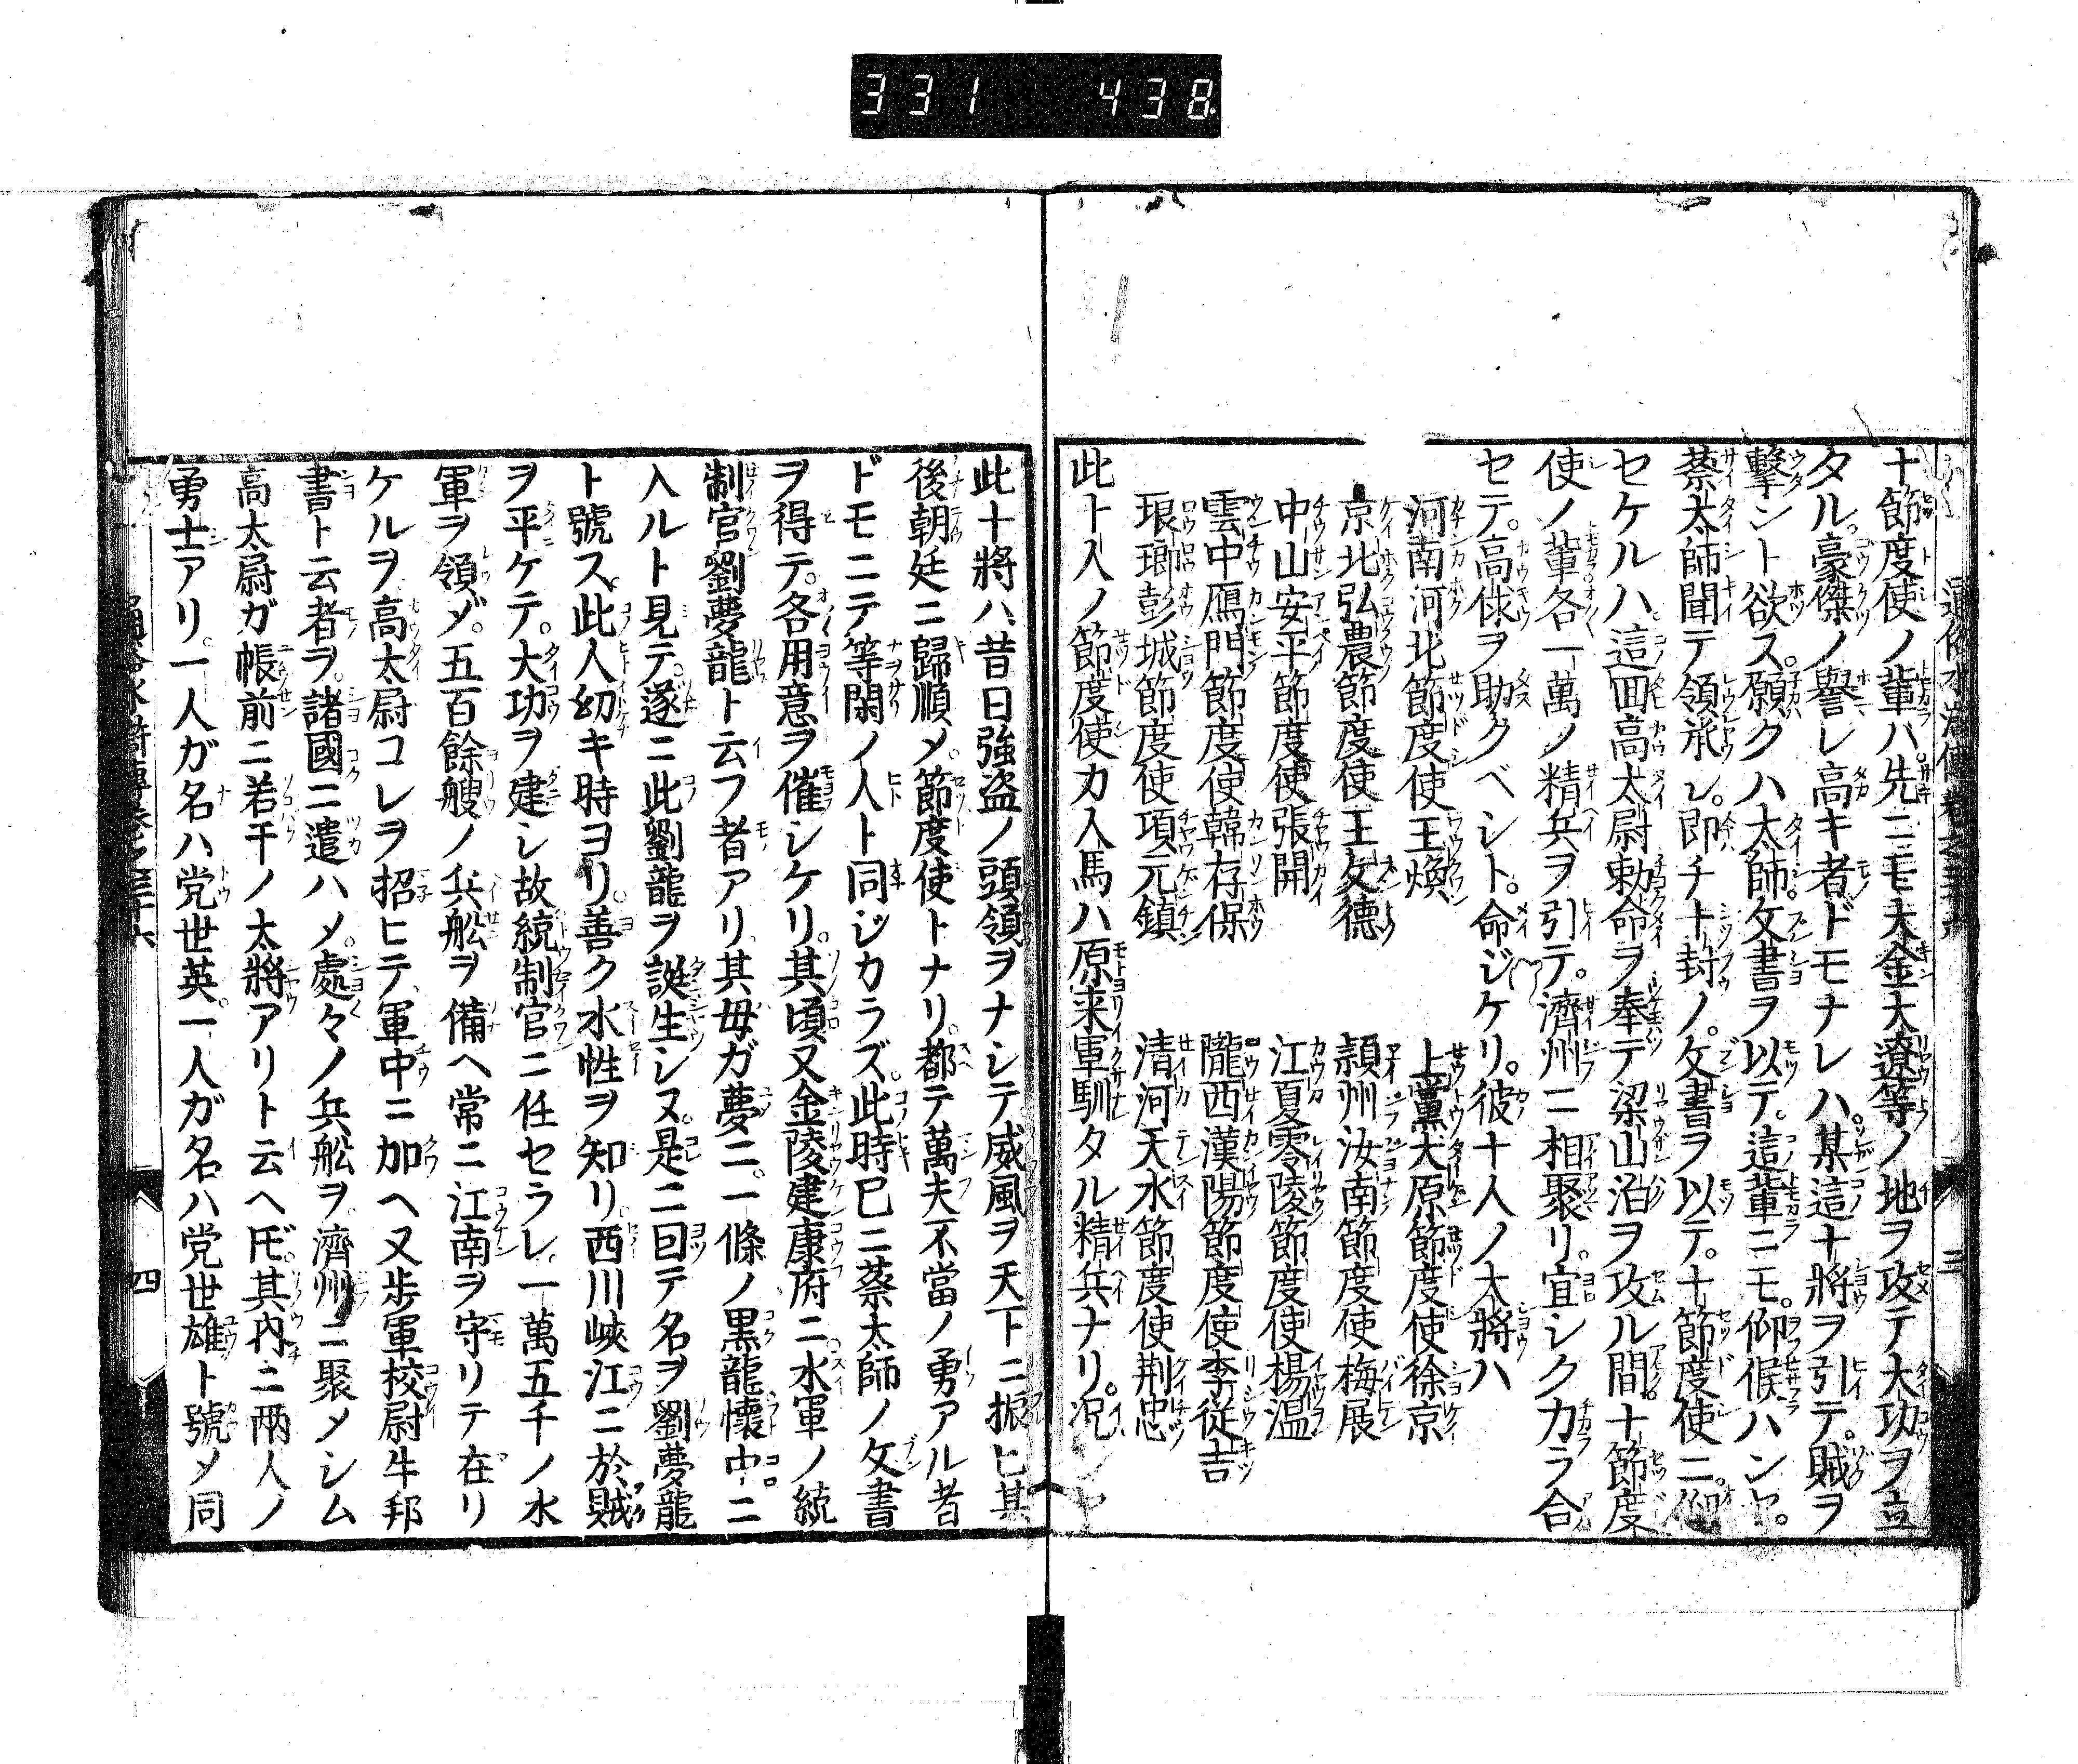 331 438
十節度使ノ輩ハ先ニモ大金大遼等ノ地ヲ攻テ大功ヲ立
タル豪傑ノ譽レ高キ者ドモナレハ。某這十將ヲ引テ。賊ヲ
撃ント欲ス。願クハ太師。文書ヲ以テ。這輩ニモ。仰候ハンヤ。
蔡太師聞テ領承シ。即チ十封ノ。文書ヲ以テ。十節度使ニ。仰
セケルハ。這回高太尉勅命ヲ奉テ梁山泊ヲ攻ル間。十節度
使ノ輩各一萬ノ精兵ヲ引テ。濟州ニ相聚リ。宜シクカラ合
セテ。高俅ヲ助クベシト。命ジケリ。彼十人ノ大將ハ
河南河北節度使王煥 上黨太原節度使徐京
京北弘農節度使王文德 頴州汝南節度使梅展
中山安平節度使張開 江夏零陵節度使楊溫
雲中鴈門節度使韓存保 隴西漢陽節度使李從吉
琅琊彭城節度使項元鎮 清河天水節度使荆忠
此十人ノ節度使カ人馬ハ原来軍馴タル精兵ナリ。况
三
此十將ハ昔日強盗ノ頭領ヲナシテ威風ヲ天下ニ振ヒ其
後朝廷ニ歸順メ。節度使トナリ。都テ萬夫不當ノ勇アル者
ドモニテ等閑ノ人ト同ジカラズ。此時已ニ蔡太師ノ文書
ヲ得テ。各用意ヲ催シケリ。其頃又金陵建康府ニ水軍ノ統
制官劉夢龍ト云フ者アリ其母ガ夢ニ。一條ノ黒龍懐中ニ
入ルト見テ。遂ニ此劉龍ヲ誕生シヌ。是ニ因テ名ヲ劉夢龍
ト號ス。此人幼キ時ヨリ。善ク水性ヲ知リ。西川峽江ニ於賊
ヲ平ケテ。大功ヲ建シ故統制官ニ任セラレ一萬五千ノ水
軍ヲ領ダ。五百餘艘ノ兵舩ヲ備ヘ常ニ江南ヲ守リテ在リ
ケルヲ高太尉コレヲ招ヒテ軍中ニ加ヘ又歩軍校尉牛邦
書ト云者ヲ。諸國ニ遣ハメ。處々ノ兵舩ヲ濟州ニ聚メシム
高太尉ガ帳前ニ若干ノ太將アリト云ヘ𪜈。其内ニ兩人ノ
勇士アリ。一人ガ名ハ党世英。一人ガ名ハ党世雄ト號メ同
四